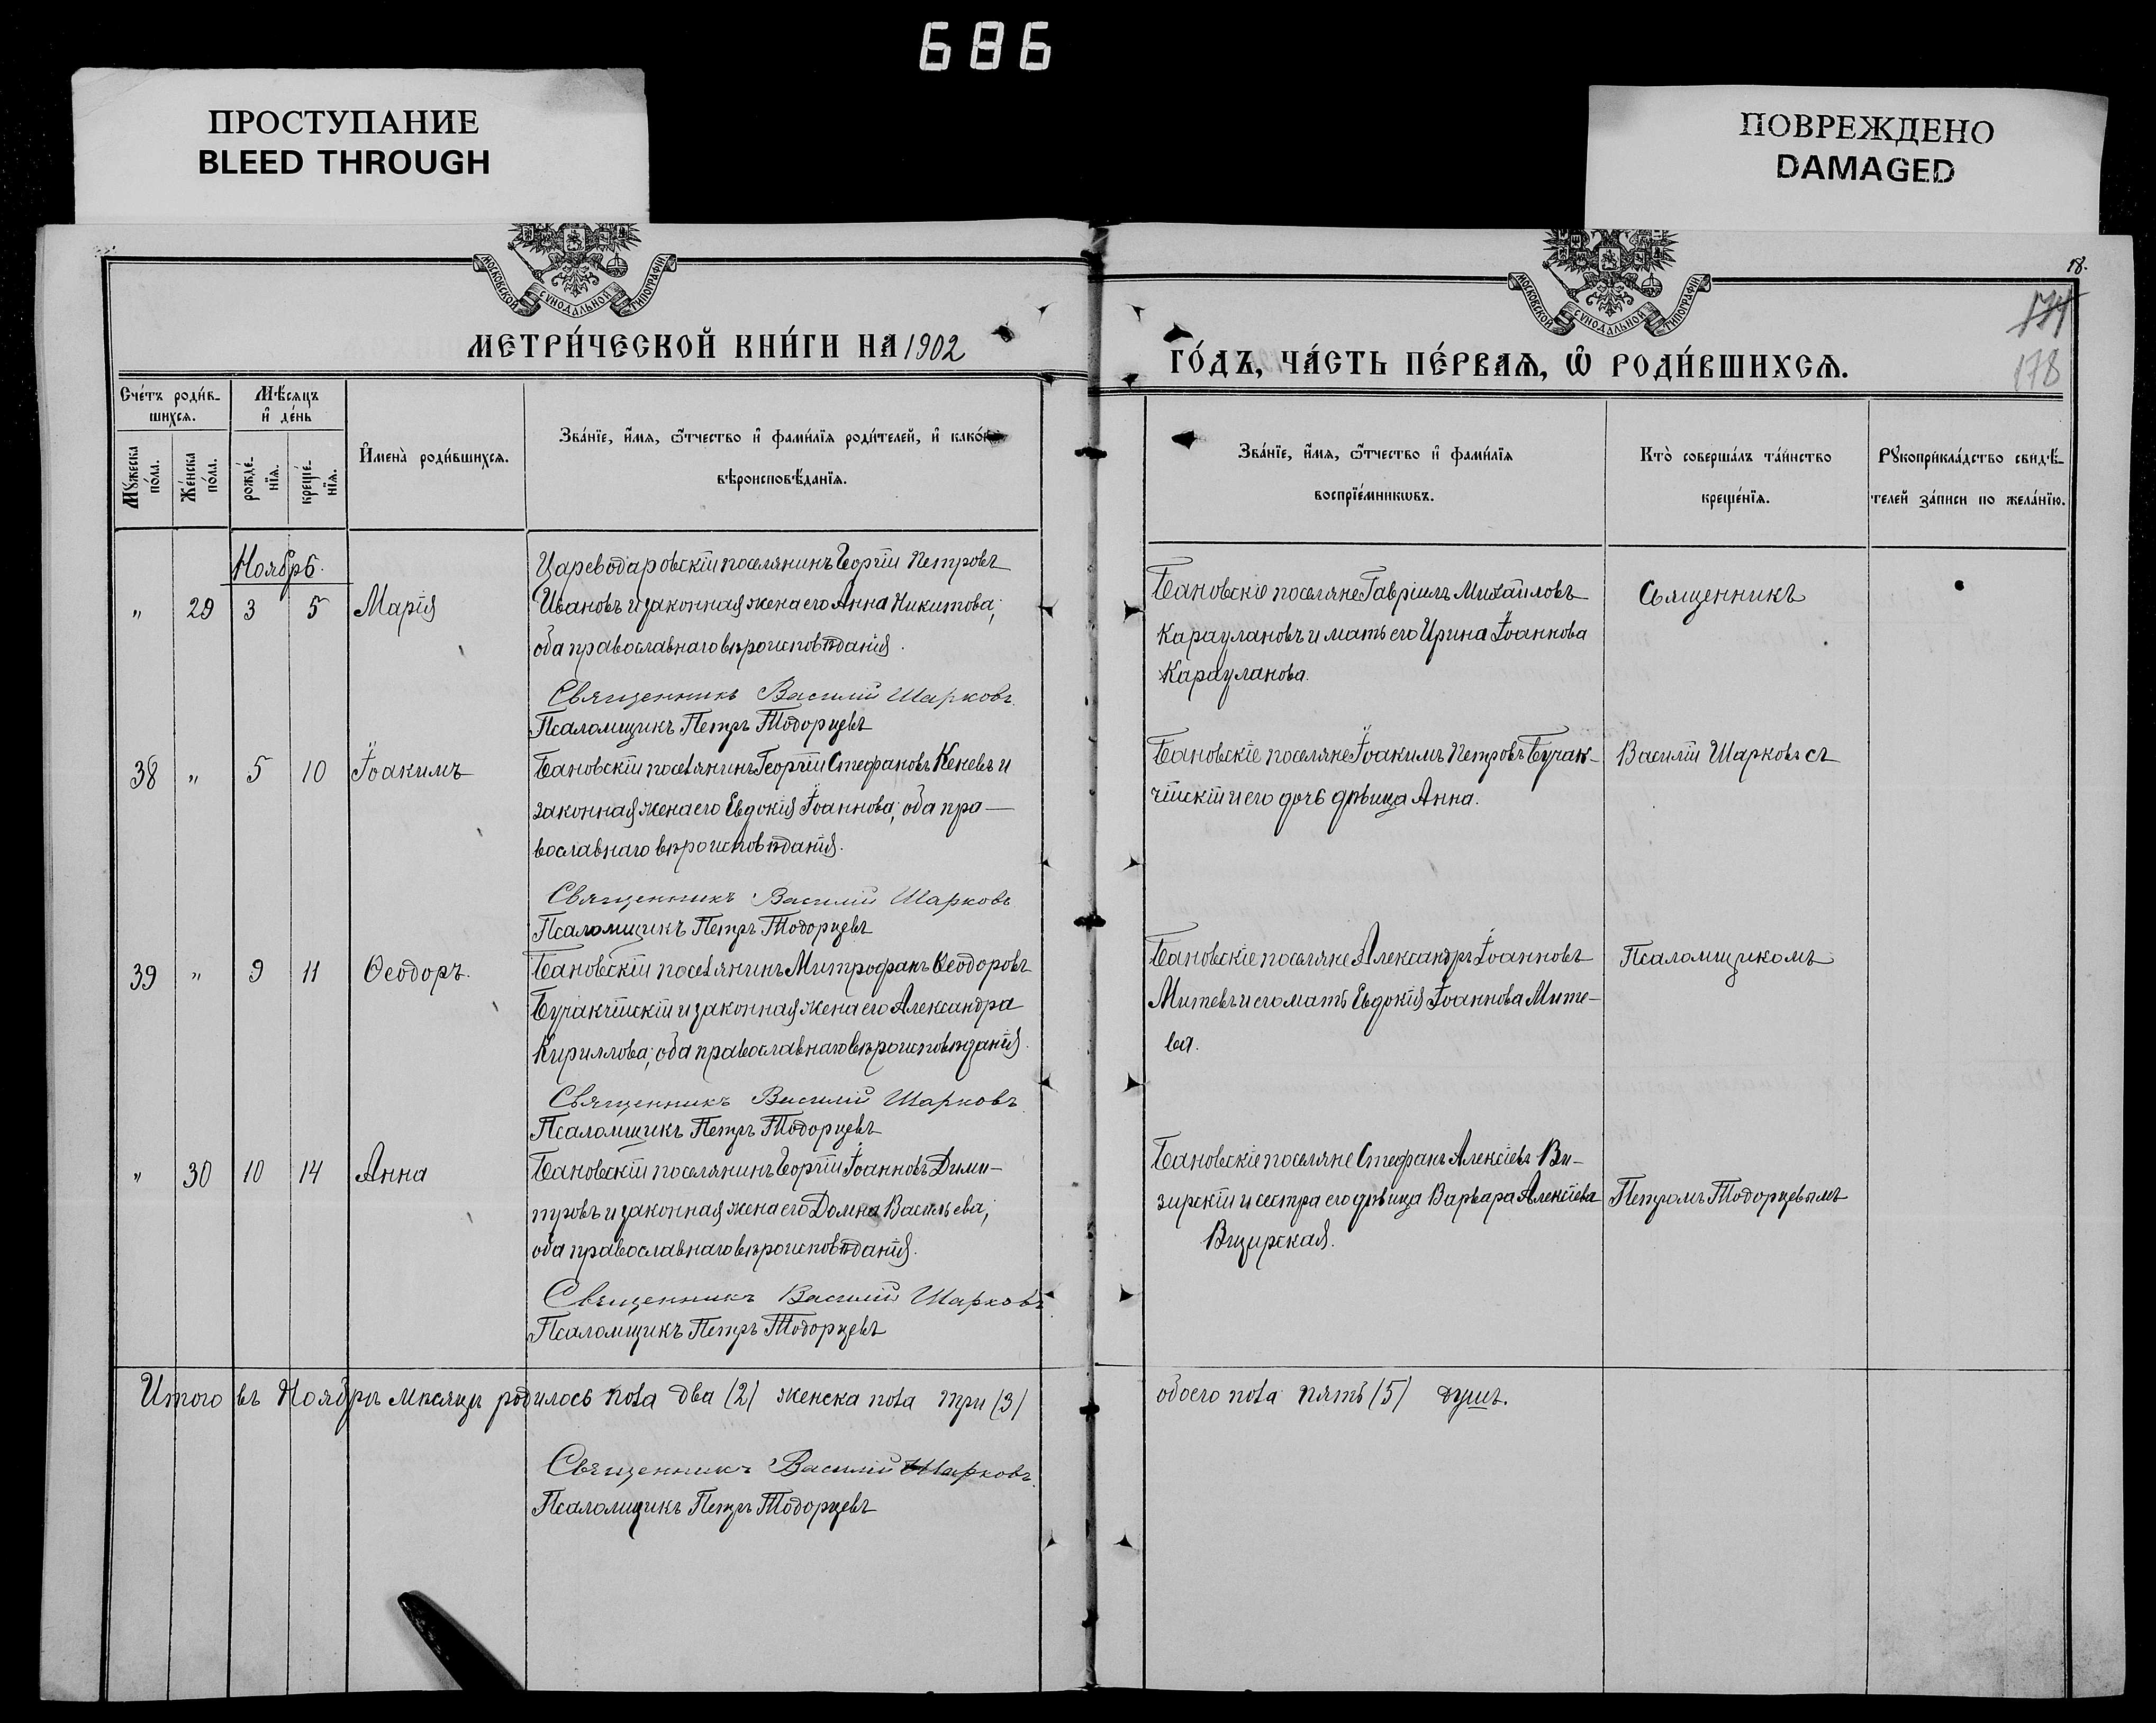 686
ПРОСТУПАНИЕ
BLEED THROUGH
ПОВРЕЖДЕНО
DAMAGED
МОСКОВСКОЙ СѴНОДАЛЬНОЙ ТИПОГРАФІИ
МОСКОВСКОЙ СѴНОДАЛЬНОЙ ТИПОГРАФІИ
18.
178
МЕТРИ́ЧЕСКОЙ КНИ́ГИ НА 1902
ГО́ДЪ, ЧА́СТЬ ПЕ́РВАѦ, Ѿ РОДИ́ВШИХСѦ.
Сче́тъ роди́в-
шихсѧ.
Мꙋжеска по́ла.
Же́нска по́ла.
Мѣ́сѧцъ
и҆ де́нь
рожде́-
нїѧ.
креще́-
нїѧ.
И҆мена̀ роди́вшихсѧ.
Зва́нїе, и҆́мѧ, ѻ҆́тчество и҆ фами́лїѧ роди́телей, и҆ како́гѡ
вѣроисповѣ́данїѧ.
Зва́нїе, и҆́мѧ, ѻ҆́тчество и҆ фами́лїѧ
воспрїе́мникѡвъ.
Кто̀ соверша́лъ та́инство
креще́нїѧ.
Рꙋкоприкла́дство свидѣ́-
телей за́писи по жела́нїю.
Ноябрь.
" 29 3 5 Марія
Цареводаровскій поселянинъ Георгій Петровъ
Ивановъ и законная жена его Анна Никитова;
оба православнаго вѣроисповѣданія.
Священникъ Василій Шарковъ.
Псаломщикъ Петръ Тодорцевъ
Бановскіе поселяне Гавріилъ Михаиловъ
Карауланови и мать его Ирина Іоаннова
Карауланова.
Священникъ
38 " 5 10 Іоакимъ
Бановскій поселянинъ Георгій Стефановъ Кеневъ и
законная жена его Евдокія Іоаннова; оба пра-
вославнаго вѣроисповѣданія.
Священникъ Василій Шарковъ
Псаломщикъ Петръ Тодорцевъ
Бановскіе поселяне Іоакимъ Петровъ Бучак-
чійскій и его дочь дѣвица Анна.
Василій Шарковъ съ
39 " 9 11 Ѳеодоръ.
Бановскій поселянинъ Митрофанъ Ѳеодоровъ
Бучакчійскій и законная жена его Александра
Кириллова; оба православнаго вѣроисповѣданія.
Священникъ Василій Шарковъ
Псаломщикъ Петръ Тодорцевъ
Бановскіе поселяне Александръ Іоанновъ
Митевъ и его мать Евдокія Іоаннова Мите-
ва.
Псаломщикомъ
" 30 10 14 Анна
Бановскій поселянинъ Георгій Іоанновъ Дими-
тровъ и законная жена его Домна Васильева;
оба православнаго вѣроисповѣданія.
Священникъ Василій Шарковъ
Псаломщикъ Петръ Тодорцевъ
Бановскіе поселяне Стефанъ Алексіевъ Ви-
зирскій и сестра его дѣвица Варвара Алексіева
Визирская.
Петромъ Тодорцевымъ
Итого въ Ноябрѣ мѣсяцѣ родилось пола два (2) женска пола три (3)
обоего пола пять (5) душъ.
Священникъ Василій Шарковъ.
Псаломщикъ Петръ Тодорцевъ